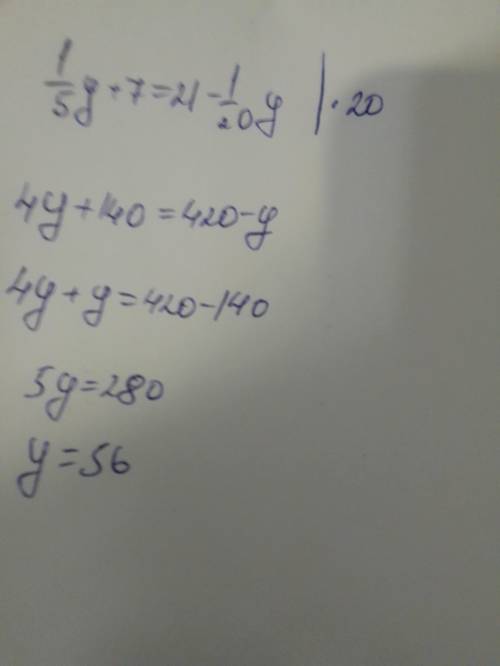 1/5 y + 7 = 21 - 1/20 y | · 20
4y + 140 = 420 - y
4y + y = 420 - 140
5y = 280
y = 56